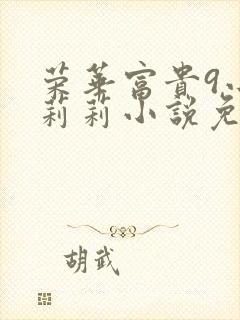 荣華富貴9
莉莉小說免
胡武